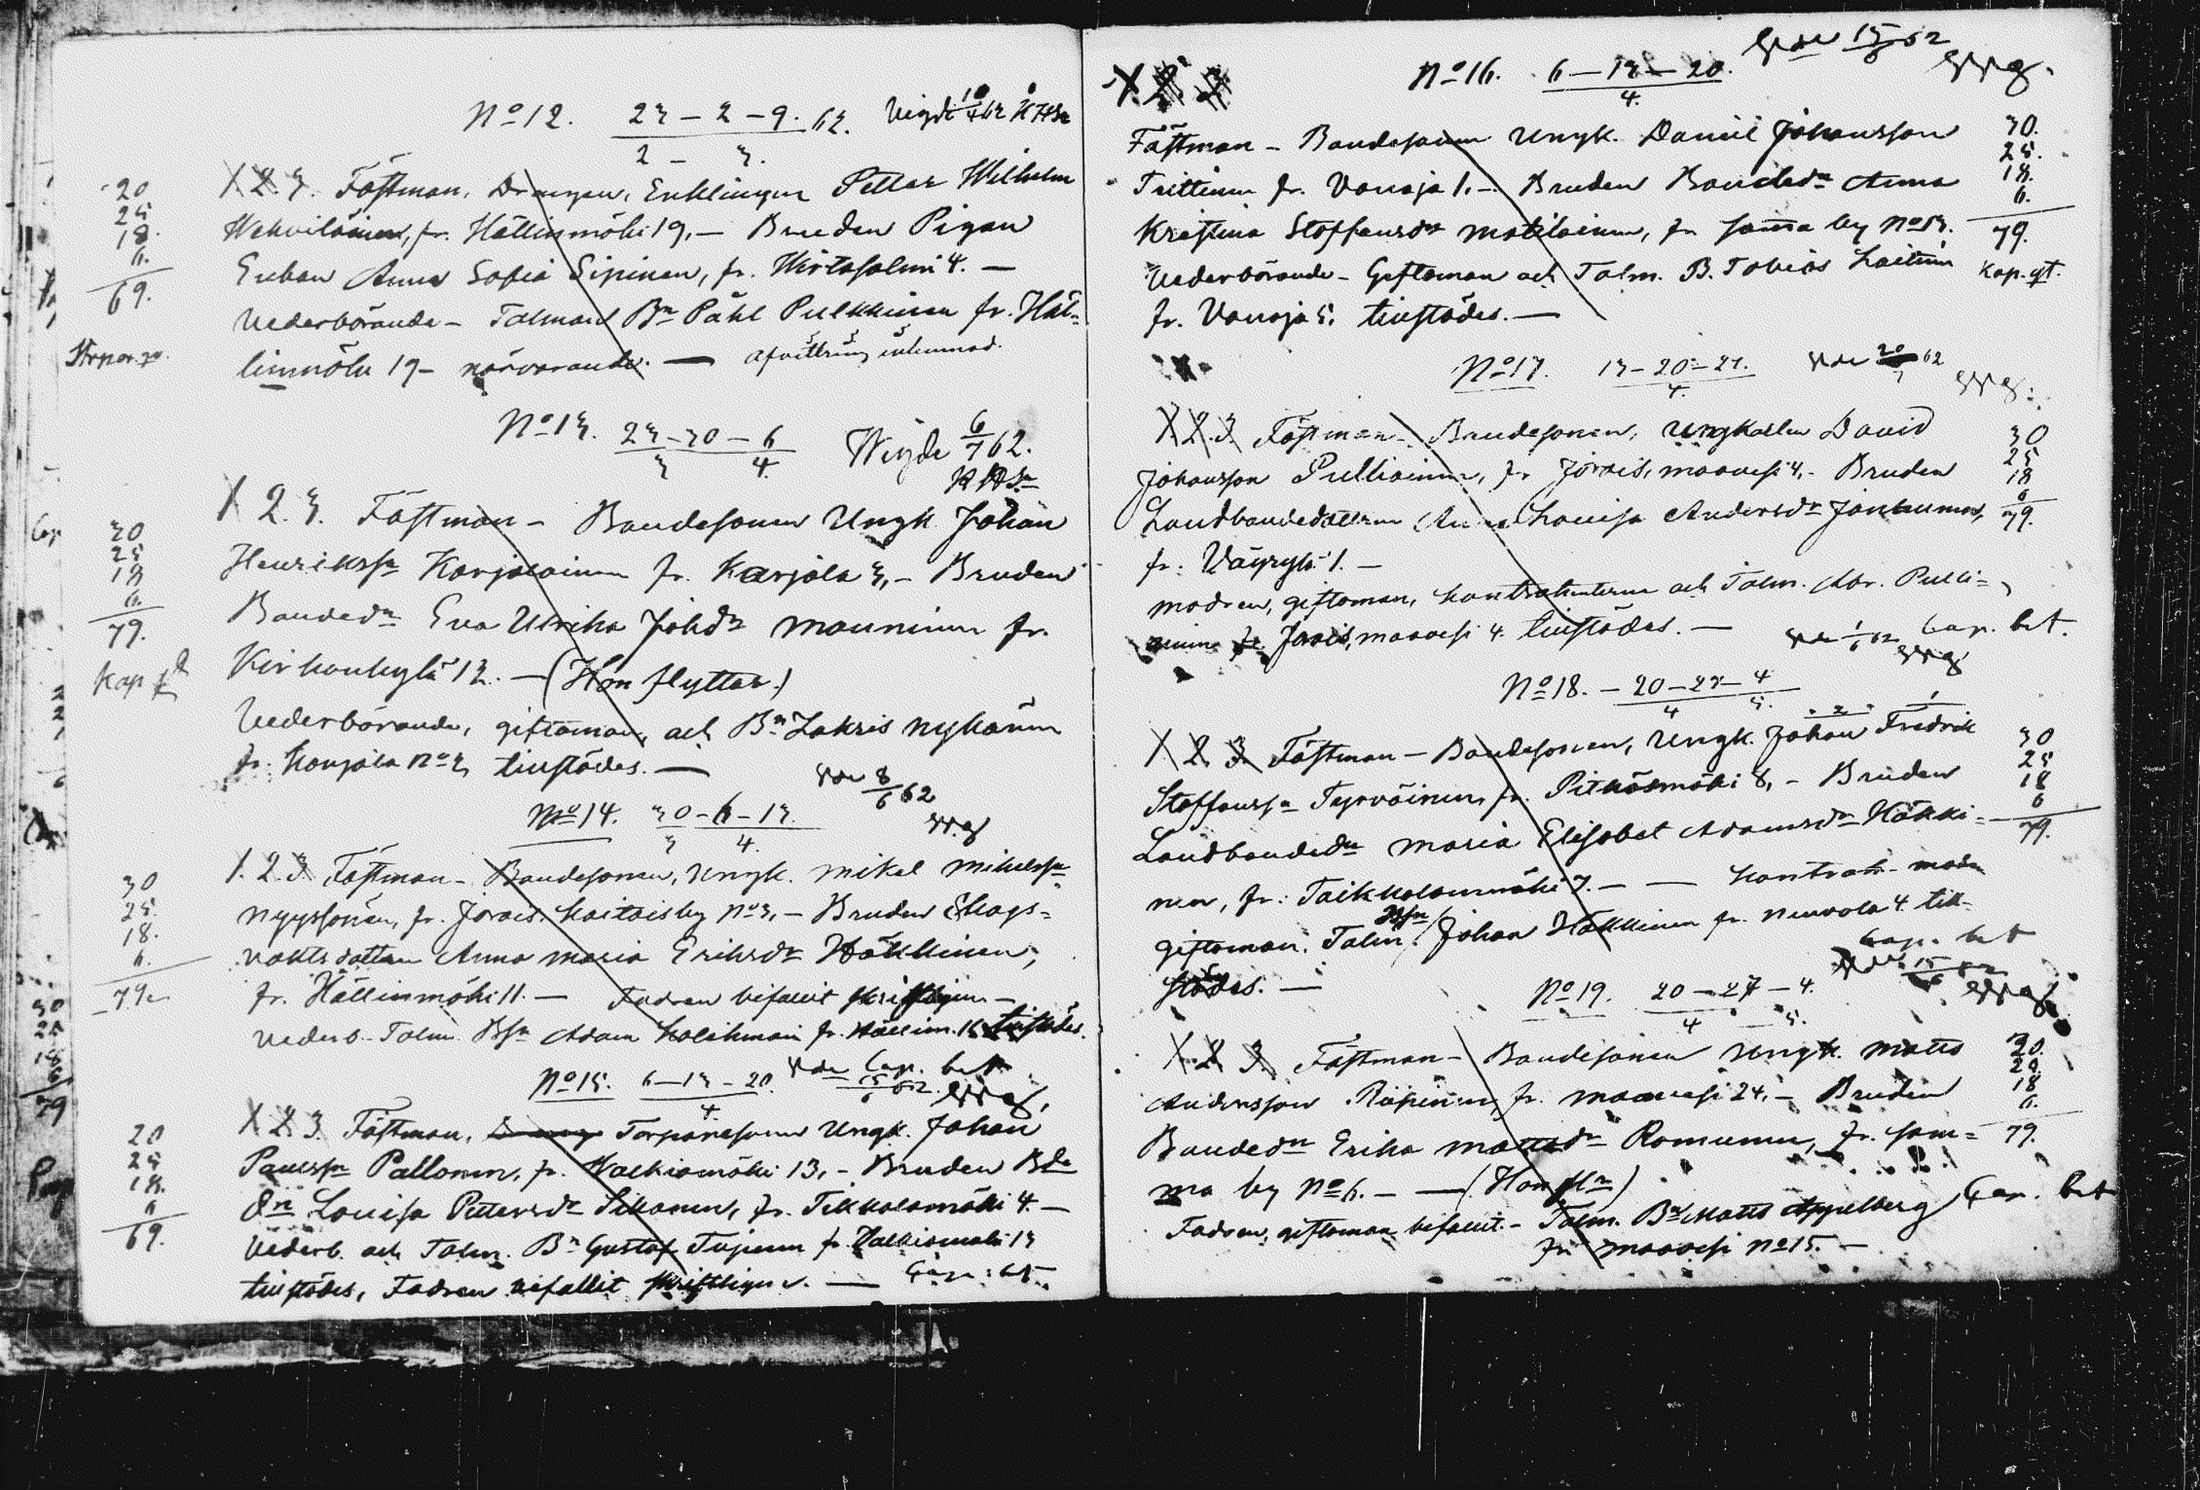 No 12. 23 – 2 – 9. 62. Vigde 10/4 62
2 – 3.
1 2 3. Fästman, Drængen, Enklingen Petter Wilhelm
Wehviläinen, fr. Hällinmäki 19, – Bruden Pigan
Enkan Anna Sofia Sipinen, fr. Wirtasalmi 4. –
Vederbörande – Talman Bn Påhl Pulkkinen fr. Häl=
linmäki 19 – närvarande. — afvittring inlemnad.
20
25
18.
6.
69.
No 13. 23 – 30 – 6 Wigde 6/7 62.
3 4
1 2. 3. Fästman – Bondesonen Ungk. Johan
Henrikssn Karjalainen fr. Karjala 3, – Bruden
Bondedr Eva Ulrika Johdr Manninen fr.
Kirkonkylä 12. – (Hon flyttar.)
Vederbörande, giftoman, och Bn Zakris Nykänen
fr. Karjala No 3 tillstädes. —
30
25
18
6.
79.
Kap
No 14. 30 – 6 – 13. 8/6 62
3 4.
1. 2. 3 Fästman – Bondesonen, Ungk. Mikel Mikelssn
Nyyssönen, fr. Jorois Kaitaisby No 3, – Bruden Skogs=
vaktsdottren Anna Maria Eriksdr Häkkinen,
fr. Hällinmäki 11. — Fadren bifallit skriftligen –
Vederb. Talm. Bsn Adam Kolehmain fr. Hällinm. 16 tillstädes.
30
25.
18.
6.
79.
No 15. 6 – 13 – 20. Cap. bet
4. 15/6 62.
1 2 3. Fästman, Torparesonen Ungk. Johan
Paulssn Pallonen, fr. Valkiamäki 13, – Bruden Bde
dr Louisa Pettersdr Sikanen, fr. Tikkalamäki 4. –
Vederb. och Talm. Bn Gustaf Tujunen fr. Valkiamäki 13
tillstädes, Fadren bifallit skriftligen. — Cap. bet.
20
25
18.
6
69.
No 16. 6 – 13 – 20. 15/6 62
4.
1. 2. 3
Fästman – Bondesonen Ungk. Daniel Johansson
Trittinen fr. Vanaja 1. – Bruden Bondedr Anna
Kristina Staffansdr Matilainen, fr samma by No 13.
Vederbörande – Giftoman och Talm. B. Tobias Laitinen
fr. Vanaja 5. tillstädes. —
30.
25.
18.
6.
79.
Kap. gt.
No 17. 13 – 20 – 27. 20/7 62
4.
1. 2. 3. Fästman – Bondesonen, Ungkarlen David
Johansson Pulliainen, fr Jorois, Maavesi 4. – Bruden
Landbondedottren Anna Lovisa Andersdr Jantunen,
fr. Väyrylä 1. –
Modren, giftoman, kontrahenterne och Talm. Abr. Pulli=
ainen fr. Jorois, Maavesi 4. tillstädes. — Cap. bet.
30
25
18
6
79.
No 18. – 20 – 27 – 4 1/6 62
4 5.
1 2 3 Fästman – Bondesonen, Ungk. Johan Fredrik
Staffanssn Tyrväinen, fr. Pitkäsmäki 8, – Bruden
Landbondedr Maria Elisabet Adamsdr Häkki=
nen, fr. Taikkolanmäki 7. – — Kontrah. Modr
giftoman. Talm. Bsn Johan Häkkinen fr. Neuvola 4. till-
städes. — Cap. bet
30
25
18
6
79.
No 19. 20 – 27 – 4. 15/6 62
4 5.
1. 2 3. Fästman – Bondesonen Ungk. Matts
Andersson Riipinen, fr. Maavesi 24, – Bruden
Bondedr Erika Mattsdr Romunen, fr. sam=
ma by No 6. – — (Hon flr)
Fadren, giftoman bifallit. – Talm. Bn Matts Appelberg Cap. bet
fr Maavesi No 15. –
30.
25.
18
6.
79.